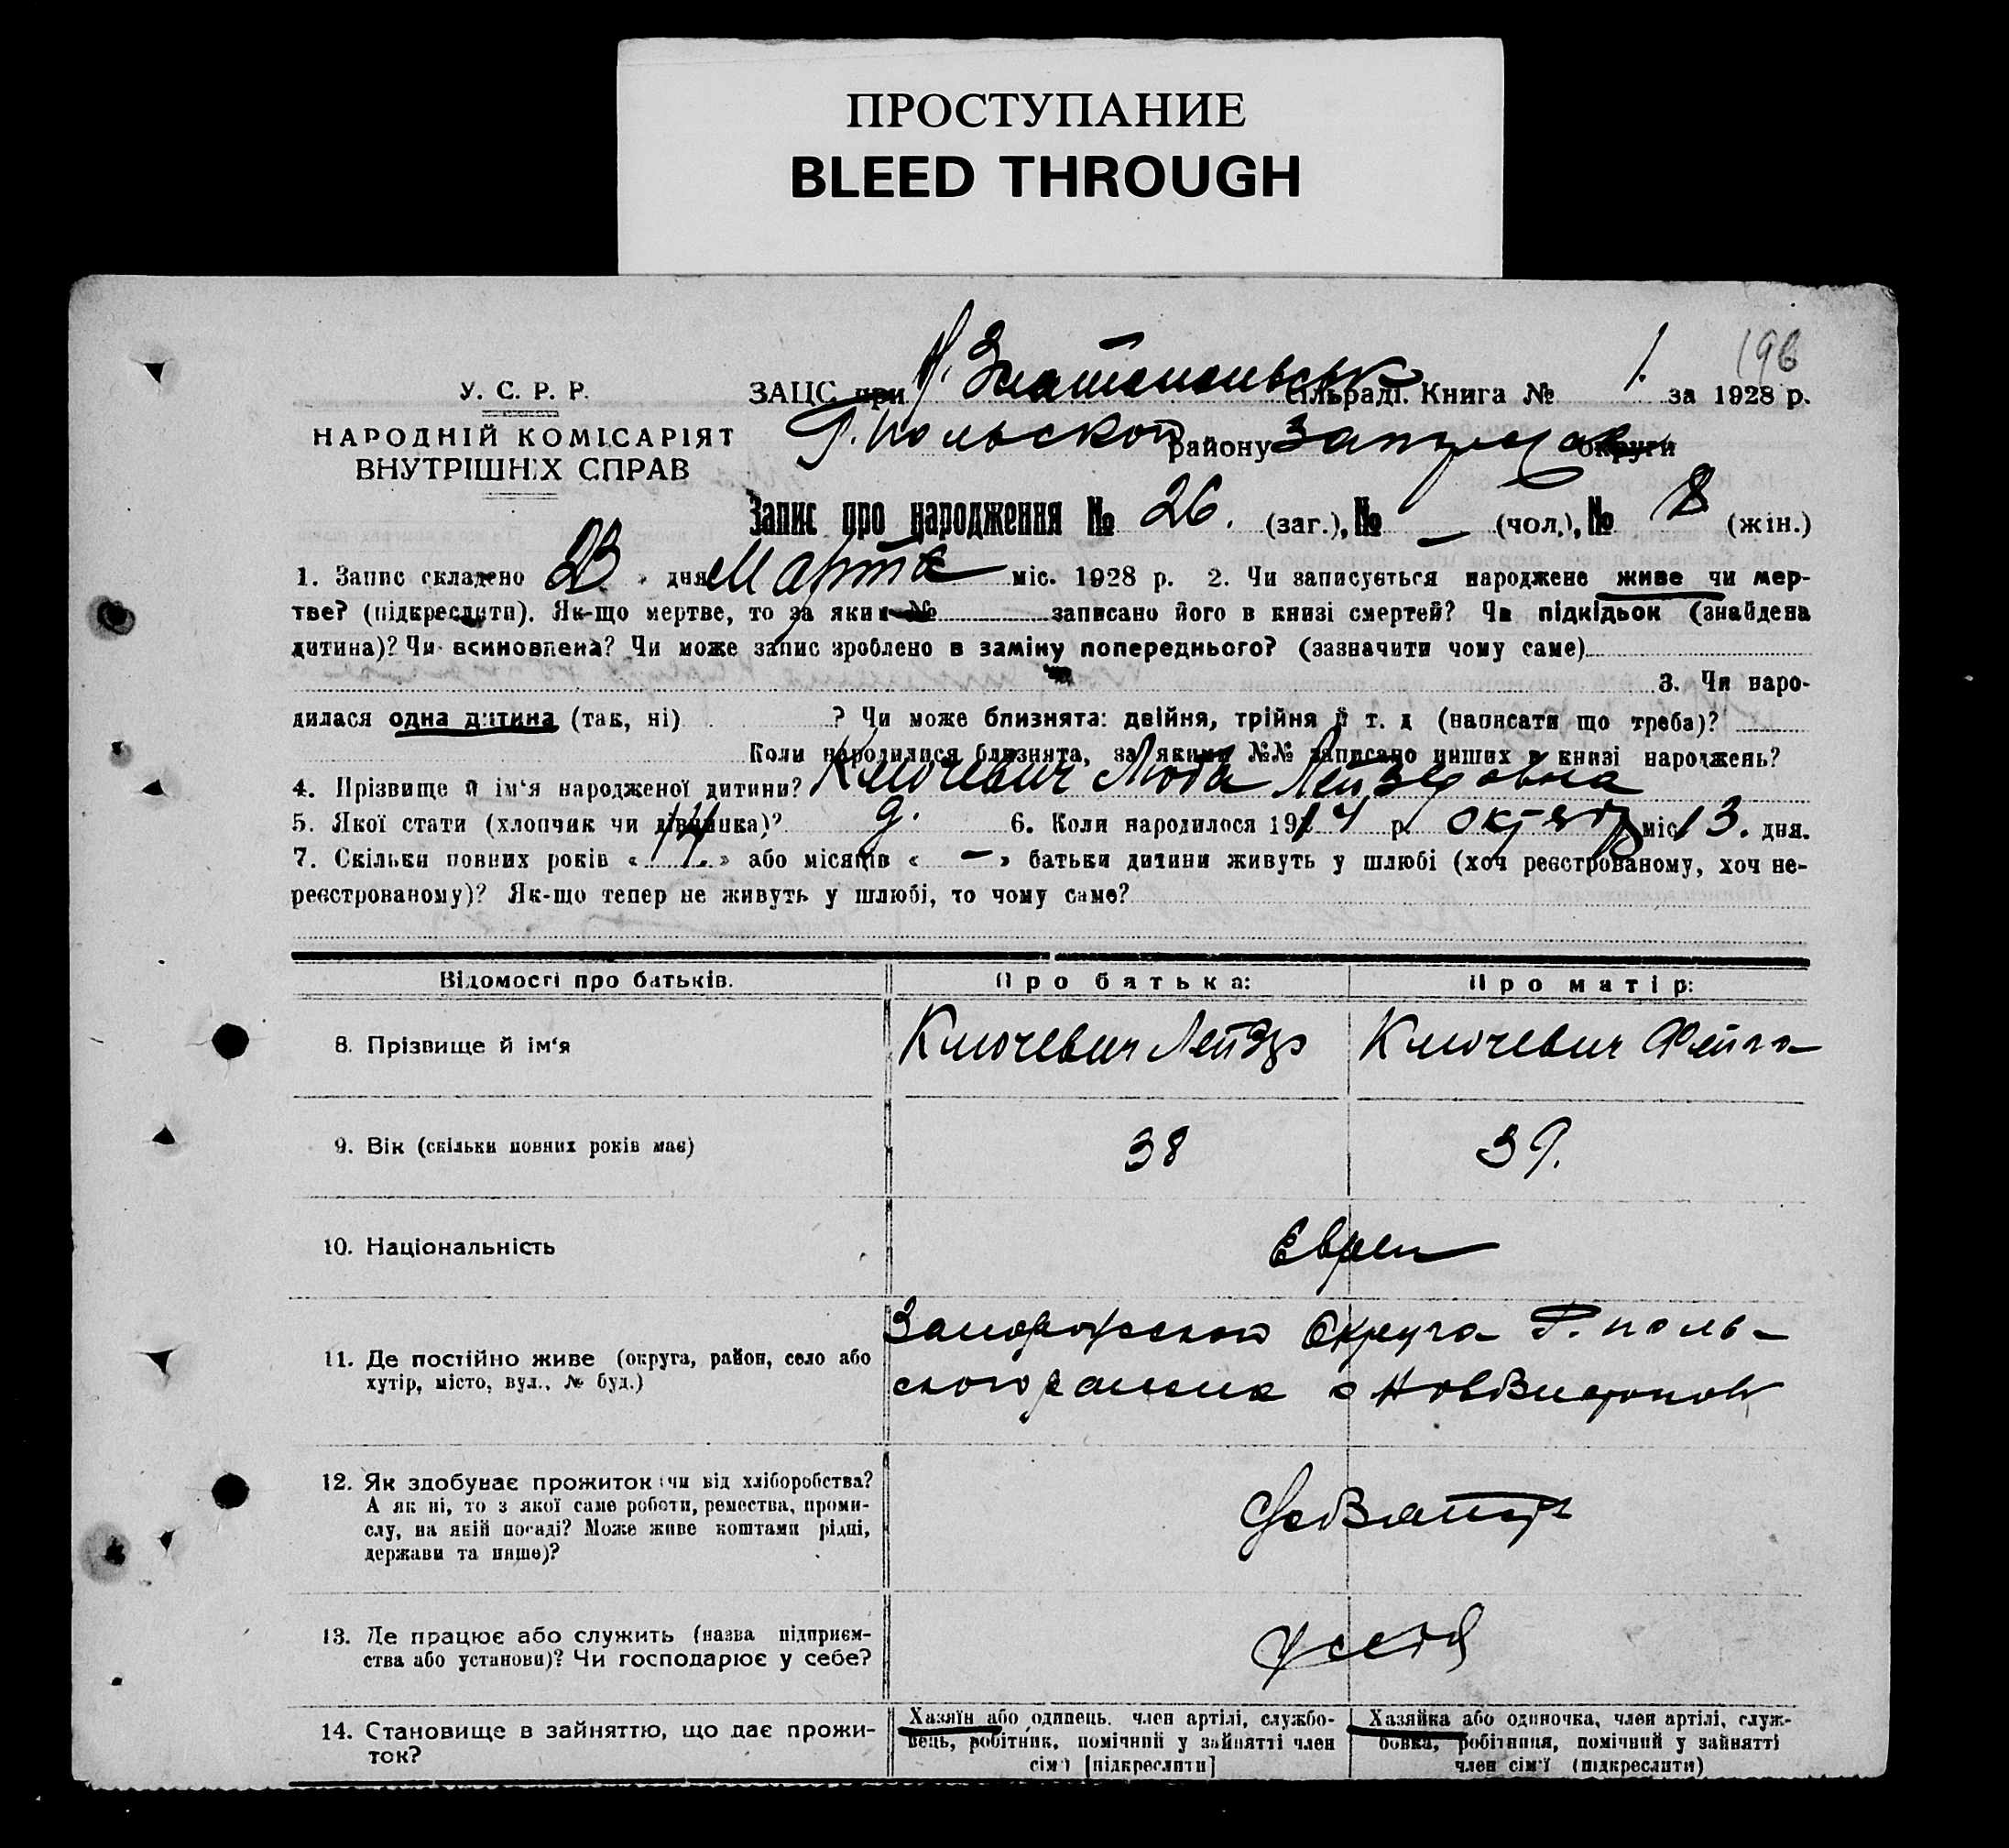 ПРОСТУПАНИЕ
BLEED THROUGH
196
У. С. Р. Р.
НАРОДНІЙ КОМІСАРІЯТ
ВНУТРІШНІХ СПРАВ
ЗАЦС при Н. Златопольск сільраді. Книга № 1. за 1928 р.
польской району округи
Запис про народження № 26. (заг.), № — (чол.), № 8 (жін.)
1. Запис складено 23 дня Марта міс. 1928 р. 2. Чи записується народжене живе чи мер-
тве? (підкреслити). Як-що мертве, то за яким № записано його в книзі смертей? Чи підкідьок (знайдена
дитина)? Чи всиновлена? Чи може запис зроблено в заміну попереднього? (зазначити чому саме)
3. Чи наро-
дилася одна дитина (так, ні) ? Чи може близнята: двійня, трійня й т. д (написати що треба)?
Коли народилися близнята, за якими №№ записано инших в книзі народжень?
4. Прізвище й ім'я народженої дитини? Ключевич Люба Лейзеровна
5. Якої стати (хлопчик чи дівчинка)? д. 6. Коли народилося 1914 р. октябр міс 13. дня.
7. Скільки повних років « 14. » або місяців « — » батьки дитини живуть у шлюбі (хоч реєстрованому, хоч не-
реєстрованому)? Як-що тепер не живуть у шлюбі, то чому саме?
Відомості про батьків. Про батька: Про матір:
8. Прізвище й ім'я Ключевич Лейзер Ключевич Фейга
9. Вік (скільки повних років має) 38 39.
10. Національність Евреи
11. Де постійно живе (округа, район, село або
хутір, місто, вул., № буд.)
Запорожской Округа поль-
ского района с
12. Як здобуває прожиток: чи від хліборобства?
А як ні, то з якої саме роботи, ремества, проми-
слу, на якій посаді? Може живе коштами рідні,
держави та инше)?
13. Де працює або служить (назва підприєм-
ства або установи)? Чи господарює у себе?
у себя
14. Становище в зайняттю, що дає прожи-
ток?
Хазяїн або одинець, член артілі, службо-
вець, робітник, помічний у зайнятті член
сім'ї [підкреслити]
Хазяйка або одиночка, член артілі, служ-
бовка, робітниця, помічний у зайнятті
член сім'ї (підкреслити)